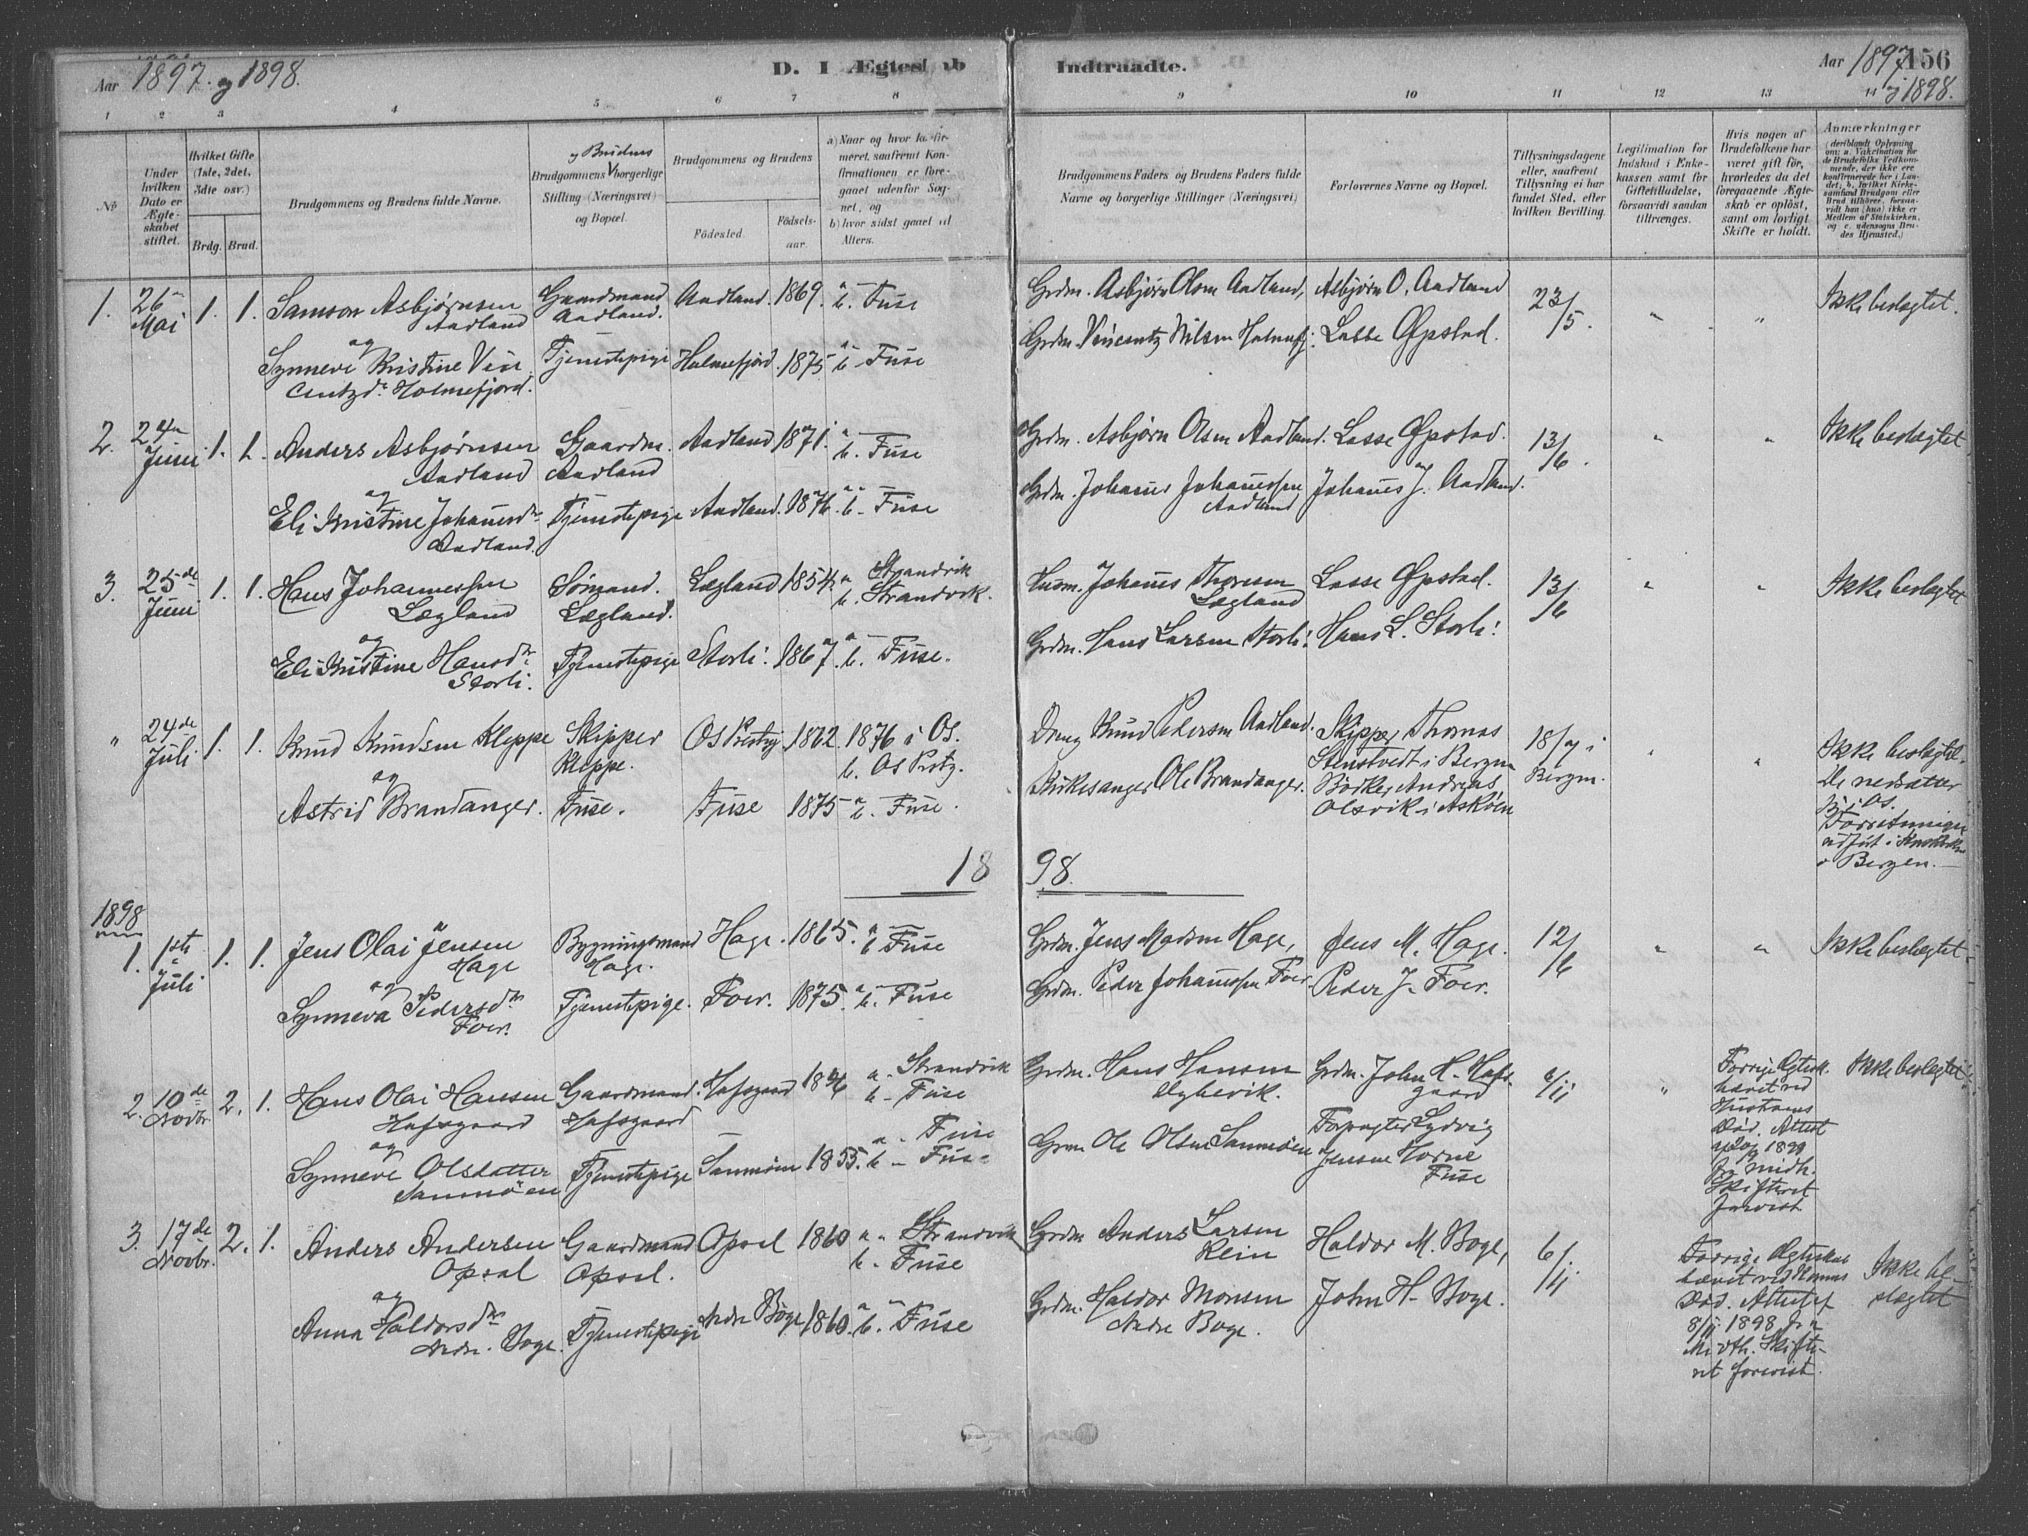 Aar 1897 og 1898.
D. I Ægtesk ab
Indtraadte.
Aar 1897 156
og 1898.
1 2 3 4 5 6 7 8 9 10 11 12 13 14
No
Under hvilken Dato er Ægteskabet stiftet.
Hvilket Gifte (1ste, 2det, 3die osv.)
Brdg. Brud.
Brudgommens og Brudens fulde Navne.
Brudgommens og Brudens borgerlige Stilling (Næringsvei) og Bopæl.
Brudgommens og Brudens
Födested.
Födsels-aar.
a) Naar og hvor konfirmeret, saafremt Konfirmationen er foregaaet udenfor Sognet, og
b) hvor sidst gaaet til Alters.
Brudgommens Faders og Brudens Faders fulde Navne og borgerlige Stillinger (Næringsvei)
Forlovernes Navne og Bopæl.
Tillysningsdagene eller, saafremt Tillysning ei har fundet Sted, efter hvilken Bevilling.
Legitimation for Indskud i Enkekassen samt for Giftetilladelse, forsaavidt saadan tiltrænges.
Hvis nogen af Brudefolkene har været gift för, hvorledes da det foregaaende Ægteskab er oplöst, samt om lovligt Skifte er holdt.
Anmærkninger (deriblandt Oplysning om: a. Vakcination for de Brudefolks Vedkommende, der ikke ere konfirmerede her i Landet; b. hvilket Kirkesamfund Brudgom eller Brud tilhörer, forsaavidt han (hun) ikke er Medlem af Statskirken, og c. udensogns Brudes Hjemsted.)
1. 26 Mai 1. 1. Samson Asbjørnsen Aadland Gaardmand Aadland. Aadland. 1869. a. b. Fuse Grdm. Asbjørn Olsen Aadland, Asbjørn O. Aadland 23/5. " " Ikke beslægtet.
og
Synneve Kristine Vincentzdr. Holmefjord. Tjenestepige Holmefjord. 1875 a. b. Fuse Grdm. Vincentz Nilsen Holmefj. Lasse Øpstad.
2. 24n Juni 1. 1. Anders Asbjørnsen Aadland Gaardm. Aadland Aadland 1871. a. b. Fuse Grdm. Asbjørn Olsen Aadland. Lasse Øpstad. 13/6. " " Ikke beslægtet
og
Eli Kristine Johannesdr. Aadland. Tjenestepige Aadland. 1876. a. b. Fuse Grdm. Johannes Johannessen Aadland Johannes J. Aadland.
3. 25de Juni 1. 1. Hans Johannessen Lægland Sømand. Lægland. Lægland 1854. a. Strandvik b. Strandvik. Husm. Johannes Thoresen Lægland Lasse Øpstad. 13/6 " " Ikke beslægtet
og
Eli Kristine Hansdr. Storli. Tjenestepige Storli. 1867. a. b. Fuse. Grdm. Hans Larsen Storli. Hans L. Storli.
" 24de Juli 1. 1. Knud Knudsen Kleppe Skipper Kleppe. Os Prestgj. 1862. 1876 i Os. b. Os Prstg. Knud Pedersen Aadland. Skipper Thomas Stenstvedt i Bergen 18/7 i Bergen. " " Ikke beslægtet.
og
Astrid Brandanger. Fuse. Fuse 1875 a. b. Fuse. Kirkesanger Ole Brandanger. Bødker Andreas Olsvik i Askøen
De nedsætter sig i Os.
Forretningen udført i
Bergen.
18 98.
1898
1. 1ste Juli 1. 1. Jens Olai Jensen Hage Bygningsmand Hage. Hage. 1865. a. b. Fuse Grdm. Jens Madsen Hage, Jens M. Hage. 12/6 " " Ikke beslægtet
og
Synneva Pedersdr. Foer. Tjenestepige. Foer. 1875. a. b. Fuse Grdm. Peder Johannessen Foer. Peder J. Foer.
2. 10de Novbr. 2. 1. Hans Olai Hansen Hafsgaard Gaardmand. Hafsgaard Hafsgaard a. Strandvik b. Fuse Grdm. Hans Hansen Grdm. John H. Hafsgaard 6/11 " Forrige Ægtesk. hævet ved Hustruens Død. Attest fra Midh. Skifteret forevist Ikke beslægtet
og
Synneve Olsdatter Sammøen Tjenestepige Sammøen 1855. a. Fuse b. Fuse Grdm. Ole Olsen Sammøen Forpagter Lydvig Jensen Horne Fuse
3. 17de Novbr. 2. 1. Anders Andersen Opsal Gaardmand Opsal. Opsal 1860 a. Strandvik b. Fuse Grdm Anders Larsen Klein Haldor M. Boge, 6/11. Forrige Ægteskab hævet ved Konens Død. Attest af 8/11 1898 fra Midth. Skifteret forevist. Ikke beslægtet
og
Anna Haldorsdr. Nedre Boge. Tjenestepige Nedre Boge 1860. a. b. Fuse Grdm. Haldor Monsen Nedre Boge. John H. Boge.